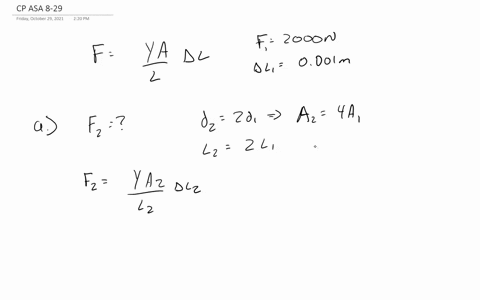 CP ASA 8-29
Friday, October 29, 2021 2:20 PM
F = YA/L ΔL
F₁ = 2000N
ΔL₁ = 0.001m
a.) F₂ = ?
d₂ = 2d₁ => A₂ = 4A₁
L₂ = 2L₁
F₂ = YA₂/L₂ ΔL₂